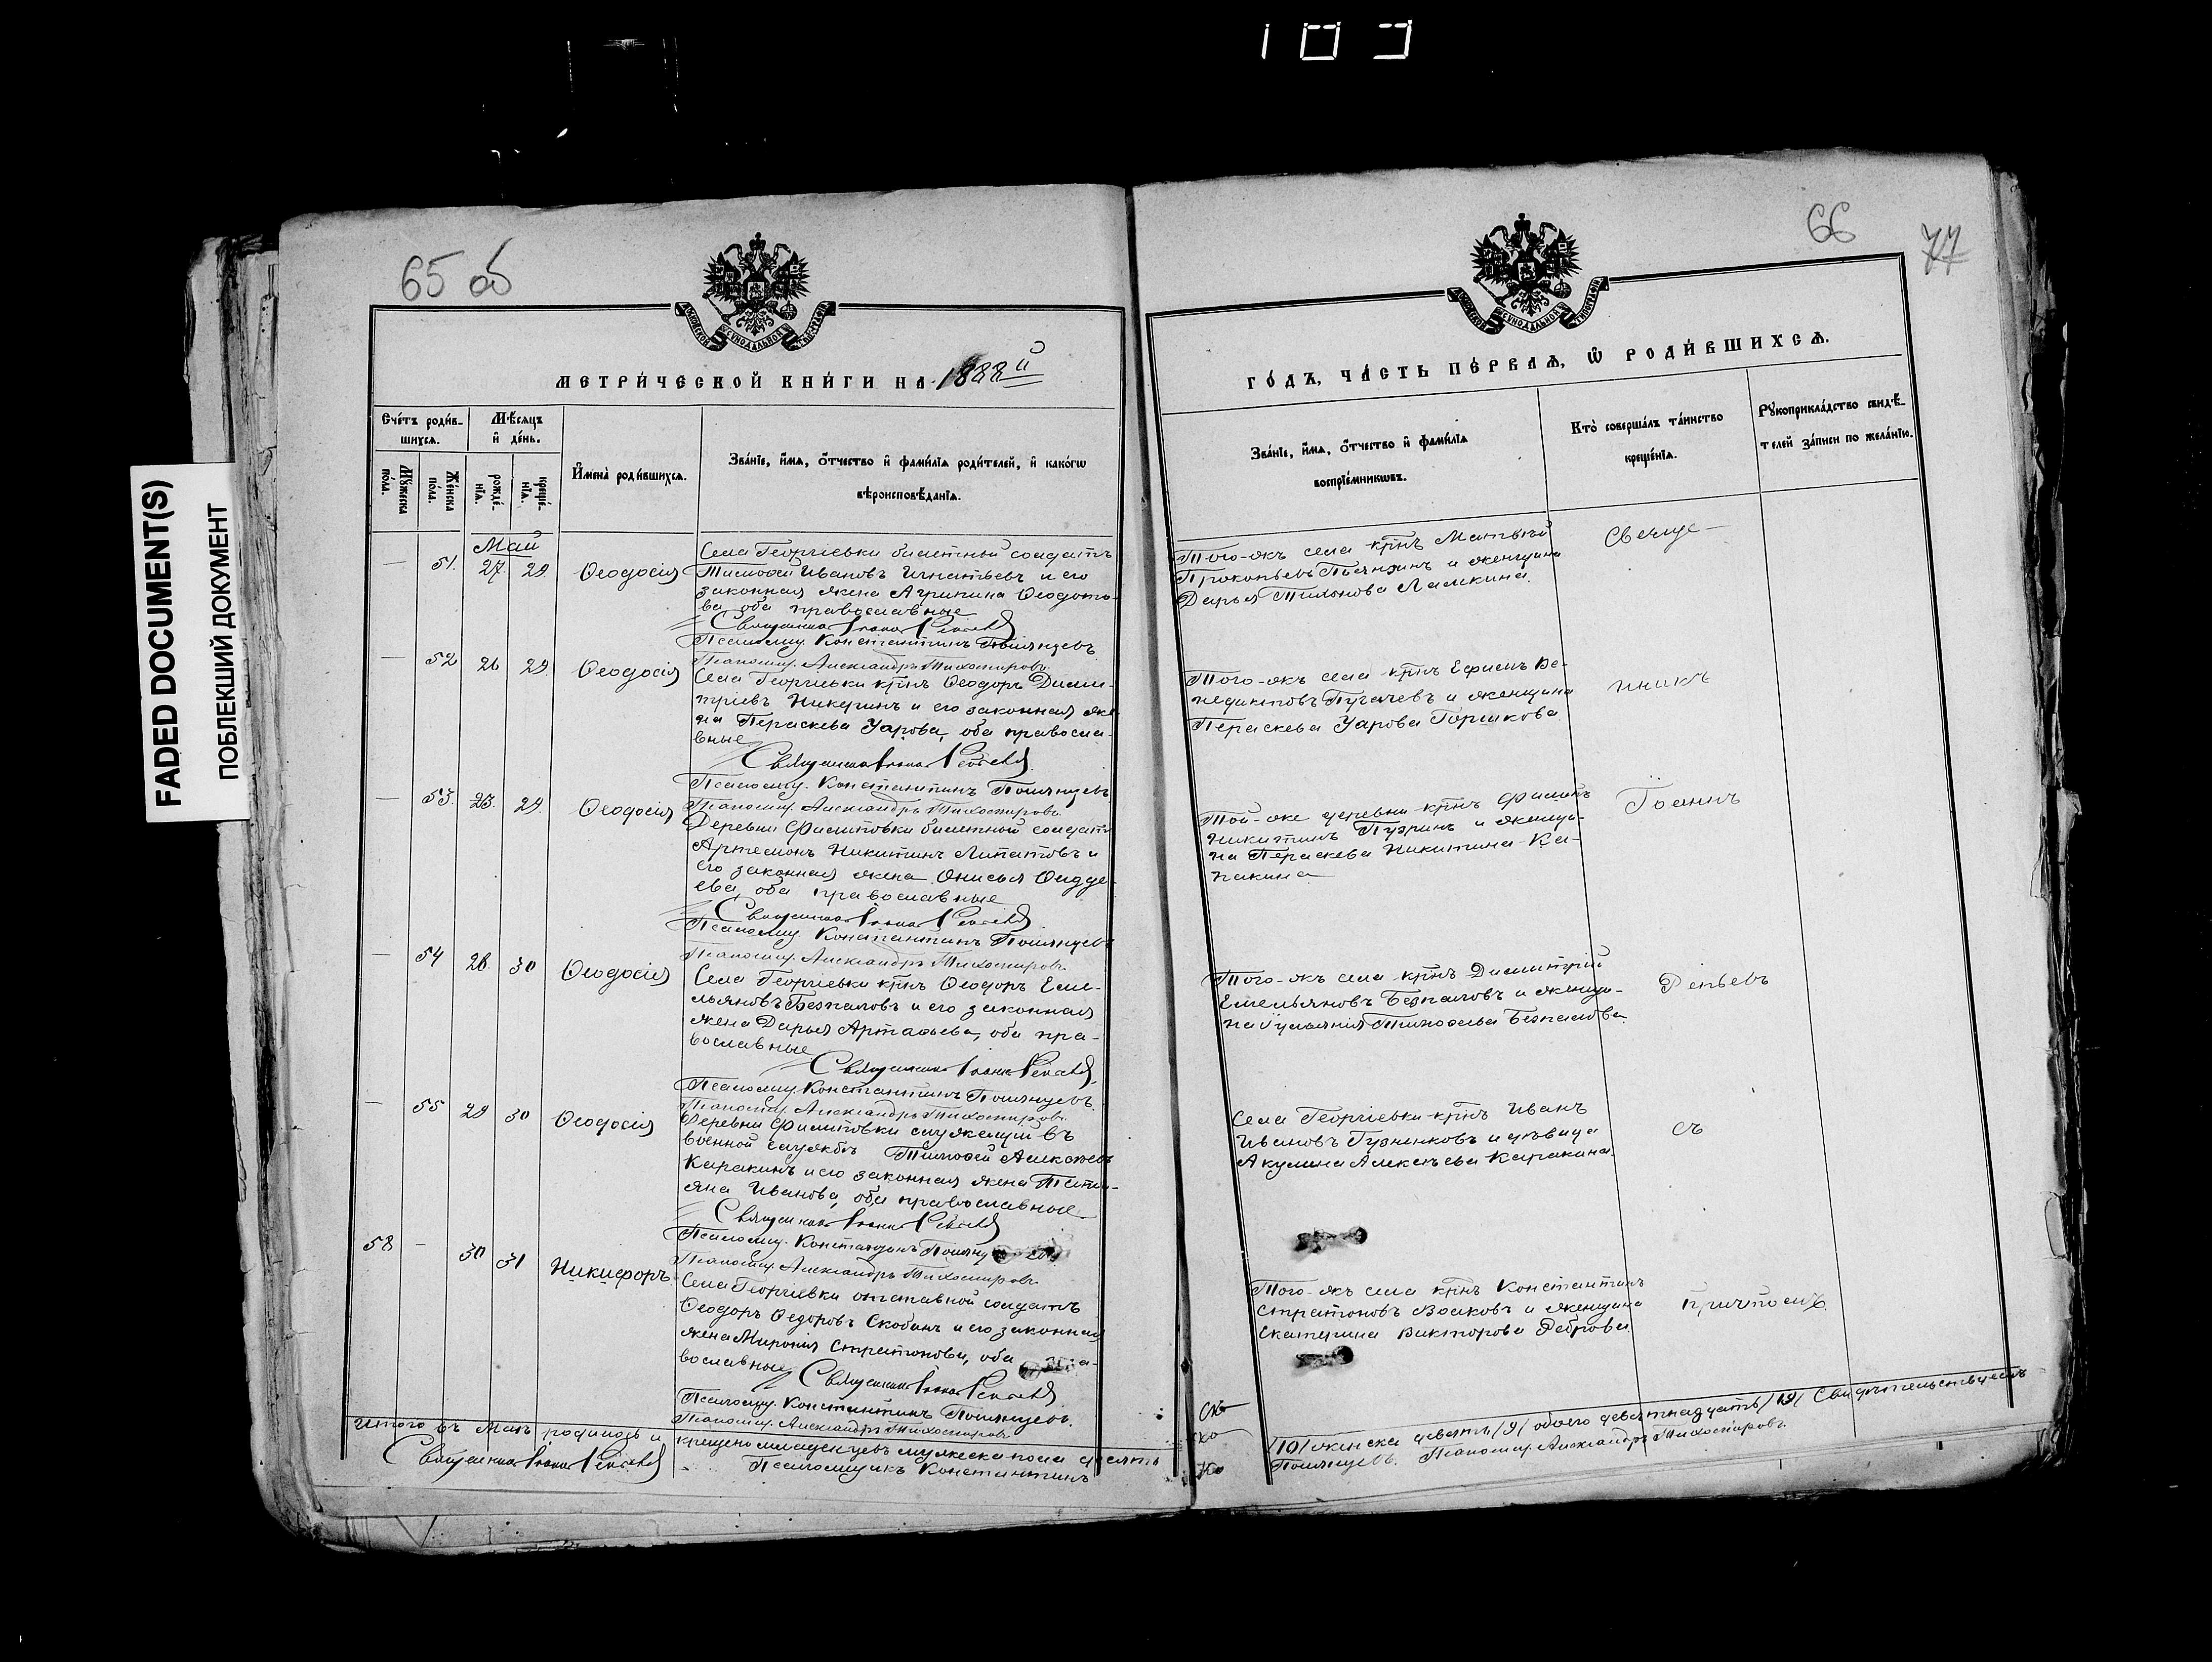 103
65 об
66
77
FADED DOCUMENT(S)
ПОБЛЕКШИЙ ДОКУМЕНТ
МОСКОВСКОЙ СУНОДАЛЬНОЙ ТИПОГРАФІИ
МОСКОВСКОЙ СУНОДАЛЬНОЙ ТИПОГРАФІИ
МЕТРИ́ЧЕСКОЙ КНИ́ГИ НА 1888й
ГО́ДЪ, ЧА́СТЬ ПЕ́РВАѦ, Ѡ РОДИ́ВШИХСѦ.
Сче́тъ роди́в-
шихсѧ.
Мѣ́сѧцъ
и҆ де́нь.
Мꙋ́жеска
по́ла.
Же́нска
по́ла.
рожде́-
нїѧ.
креще́-
нїѧ.
И҆мена̀ роди́вшихсѧ.
Зва́нїе, и҆́мѧ, ѻ҆́тчество и҆ фами́лїѧ роди́телей, и҆ како́гѡ
вѣроисповѣ́данїѧ.
Зва́нїе, и҆́мѧ, ѻ҆́тчество и҆ фами́лїѧ
воспрїе́мникѡвъ.
Кто̀ соверша́лъ та́инство
креще́нїѧ.
Рꙋкоприкла́дство свидѣ́-
телей за́писи по жела́нїю.
Май
— 51. 27 29. Ѳеодосія
Села Георгіевки билетный солдатъ
Тимофей Ивановъ Игнатьевъ и его
законная жена Агрипина Ѳедото-
ва, оба православные
Священникъ Іоаннъ Репьевъ
Псаломщ. Константинъ Полянцевъ
Псаломщ. Александръ Тихомировъ
Того-жъ села крнъ Матвѣй
Прокопьевъ и женщина
Дарья Тихонова Лямкина.
Свяще-
— 52 26 29. Ѳеодосія
Села Георгіевки крнъ Ѳеодоръ Дими-
тріевъ Никеринъ и его законная же-
на Пераскева Уарова, оба правосла-
вные
Священникъ Іоаннъ Репьевъ
Псаломщ. Константинъ Полянцевъ
Псаломщ. Александръ Тихомировъ
Того-жъ села крнъ Ефимъ Ве-
недиктовъ Пугачевъ и женщина
Пераскева Уарова Горшкова.
нникъ
— 53. 23. 29. Ѳеодосія
Деревни Филиповки билетный солдатъ
Артемонъ Никитинъ Липатовъ и
его законная жена Онисья Ѳадде-
ева, оба православные
Священникъ Іоаннъ Репьевъ
Псаломщ. Константинъ Полянцевъ
Псаломщ. Александръ Тихомировъ
Той-же деревни крнъ Филипъ
Никитинъ Пузринъ и женщи-
на Пераскева Никитина Ка-
пакина
Іоаннъ
— 54 28. 30 Ѳеодосія
Села Георгіевки крнъ Ѳеодоръ Еме-
льяновъ Безпаловъ и его законная
жена Дарья Артафьева, оба пра-
вославные
Священникъ Іоаннъ Репьевъ
Псаломщ. Константинъ Полянцевъ
Псаломщ. Александръ Тихомировъ
Того-жъ села крнъ Димитрій
Емельяновъ Безпаловъ и женщи-
на Іульянія Тимофеева Безпалова.
Репьевъ
— 55 29 30 Ѳеодосія
Деревни Филиповки служащій въ
военной службѣ Тимофей Алексѣевъ
Каракинъ и его законная жена Тать-
яна Иванова, оба православные
Священникъ Іоаннъ Репьевъ
Псаломщ. Константинъ
Псаломщ. Александръ Тихомировъ
Села Георгіевки крнъ Иванъ
Ивановъ Гузненковъ и дѣвица
Акулина Алексѣева Каракина.
съ
58 — 30 31 Никифоръ
Села Георгіевки отставной солдатъ
Ѳеодоръ Ѳедоровъ Скобинъ и его законная
жена Миропія Стратонова, оба
вославные
Священникъ Іоаннъ Репьевъ
Псаломщ. Константинъ Полянцевъ
Псаломщ. Александръ Тихомировъ
Того-жъ села крнъ Константинъ
Стратоновъ Волковъ и женщина
Екатерина Викторова Реброва.
причтомъ.
Итого въ Маѣ родилось и крещено младенцевъ мужеска пола десять
/10/ женска девять /9/ обоего девятнадцать /19/ Свидѣтельствуемъ
Священникъ Іоаннъ Репьевъ Псаломщикъ Константинъ
Полянцевъ. Псаломщ. Александръ Тихомировъ.